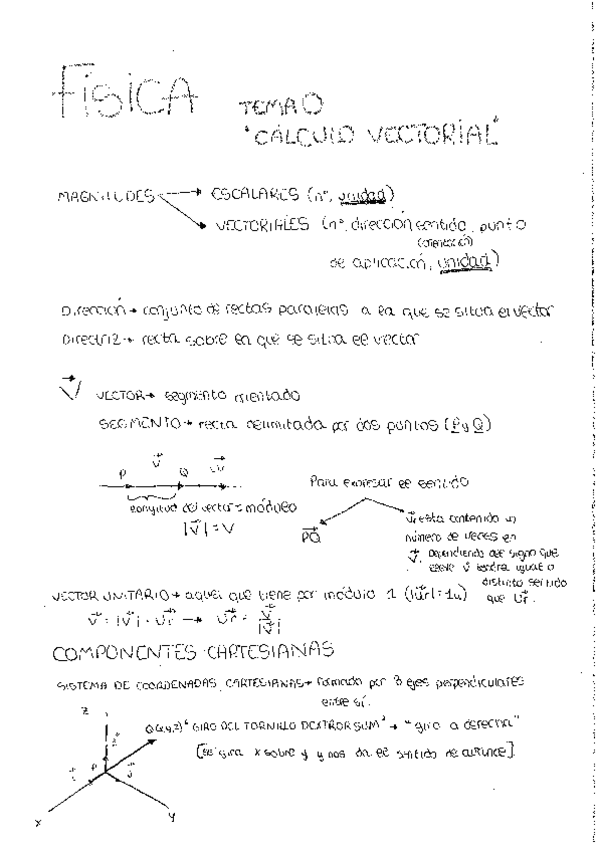 FISICA
TEMA 0
"CÁLCULO VECTORIAL"
MAGNITUDES → ESCALARES (nº, unidad)
→ VECTORIALES (nº, dirección, sentido, punto
(orientación)
de aplicación, unidad)
Dirección → conjunto de rectas paralelas a la que se situa el vector
Directriz → recta sobre la que se situa el vector
V⃗ VECTOR → segmento orientado
SEGMENTO → recta delimitada por dos puntos (P y Q)
P v⃗ Q
Para expresar el sentido
longitud del vector = módulo
|v⃗| = V
PQ⃗
está contenido un
número de veces en
v⃗. Dependiendo del signo que
v⃗ tendra igual o
distinto sentido
que ur⃗.
VECTOR UNITARIO → aquel que tiene por módulo 1 (|ur⃗| = 1u)
v⃗ = |v⃗| · ur⃗ → ur⃗ = v⃗/|v⃗|
COMPONENTES CARTESIANAS
SISTEMA DE COORDENADAS CARTESIANAS → formado por 3 ejes perpendiculares
entre sí.
Z
(x,y,z) "GIRO DEL TORNILLO DEXTRORSUM" → "gira a derecha"
[se gira x sobre y y nos da el sentido de avance]
P
x
y